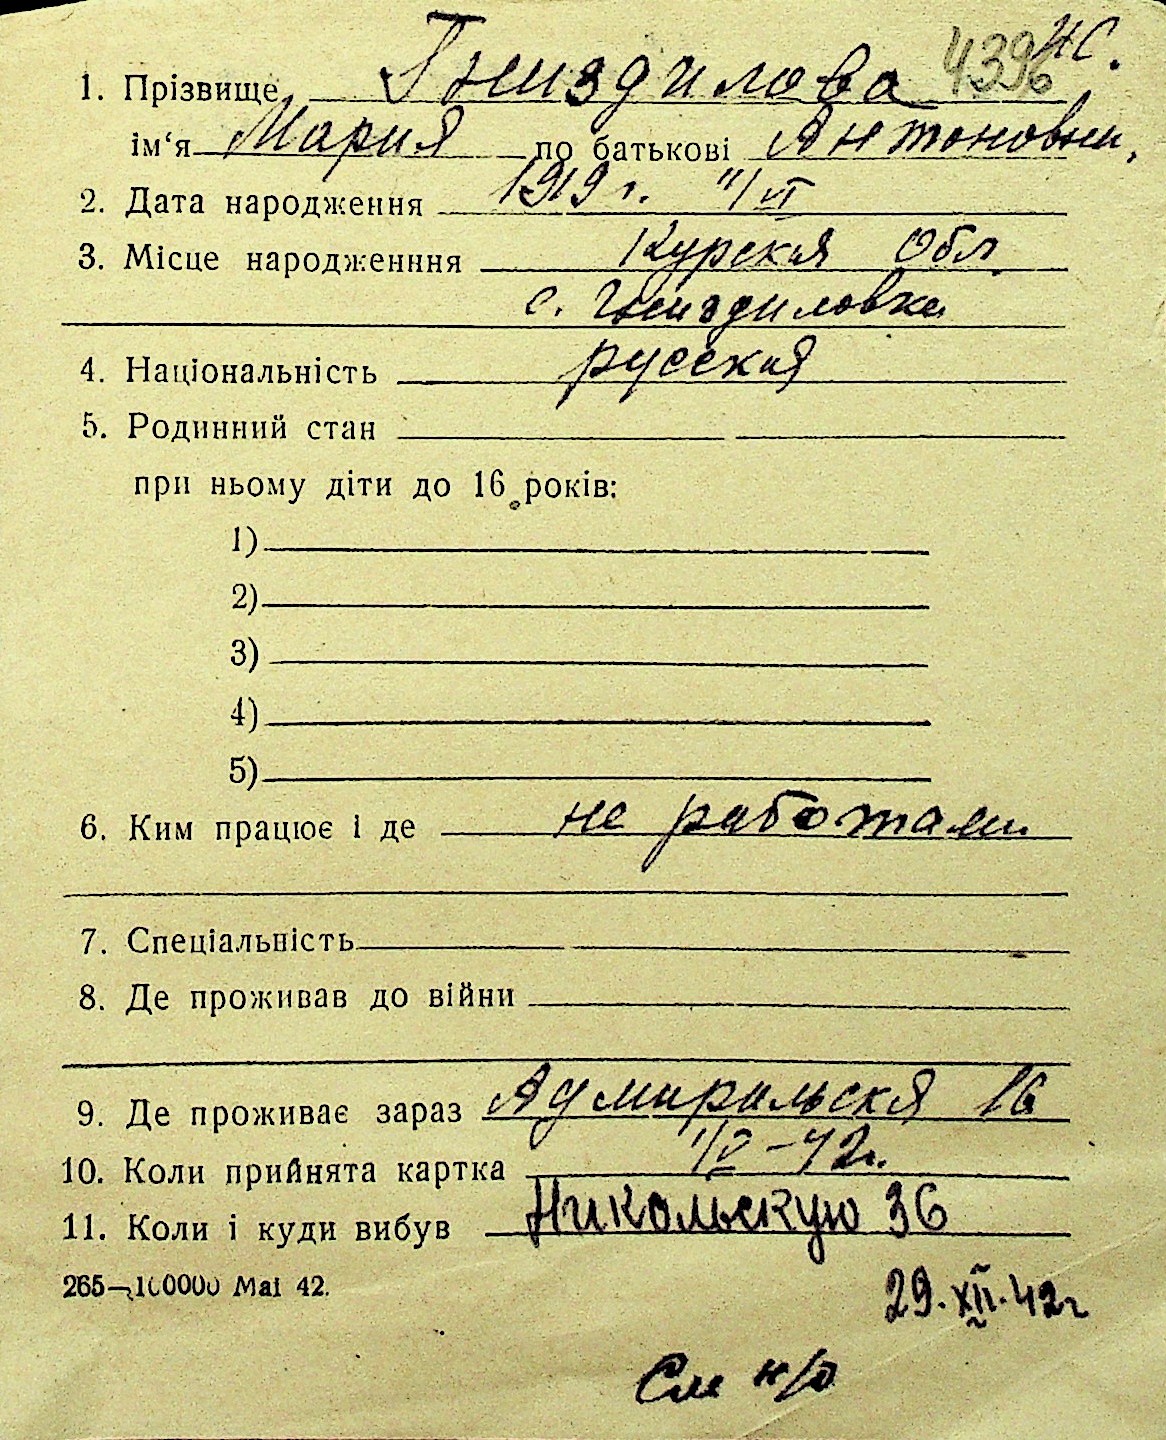 4396 НС.
1. Прізвище Гниздилова
ім‘я Мария по батькові Антоновн.
2. Дата народження 1919 г. "/VI
3. Місце народженння Курская Обл
с. Гниздиловка
4. Національність русская
5. Родинний стан
при ньому діти до 16 років:
1)
2)
3)
4)
5)
6. Ким працює і де не работает
7. Спеціальність
8. Де проживав до війни
9. Де проживає зараз Адмиральская 16
10. Коли прийнята картка 1/V-42г.
11. Коли і куди вибув Никольскую 36
265—100000 Mai 42.
29.XII.42г
См н/о